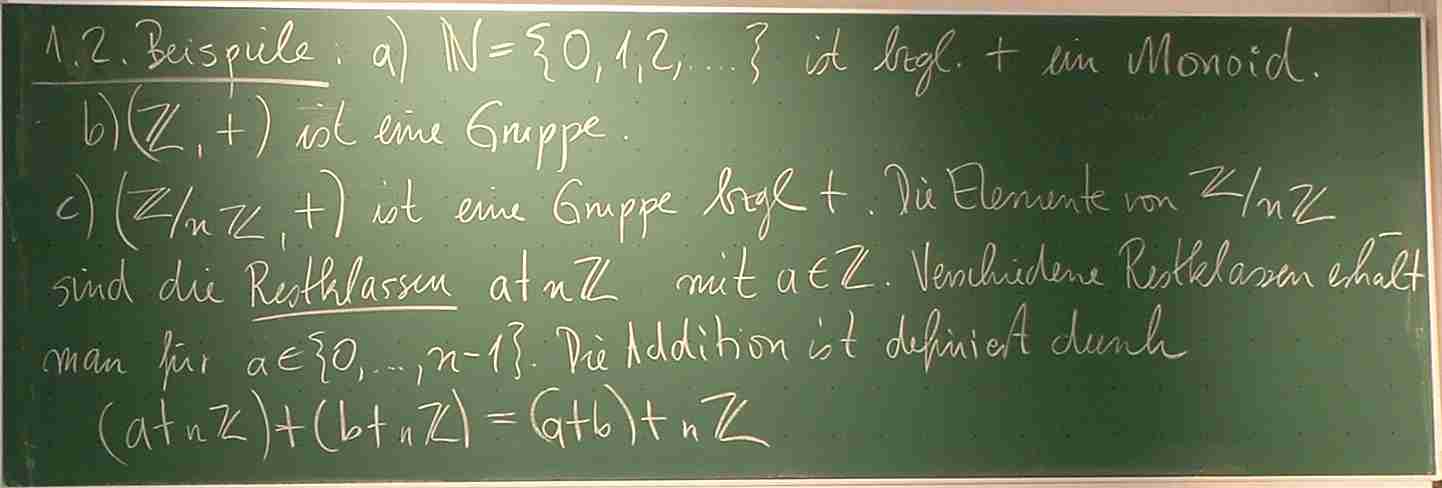 1.2. Beispiele: a) ℕ = {0, 1, 2, ....} ist bzgl. + ein Monoid.
b) (ℤ, +) ist eine Gruppe.
c) (ℤ/nℤ, +) ist eine Gruppe bzgl +. Die Elemente von ℤ/nℤ
sind die Restklassen a+nℤ mit a∈ℤ. Verschiedene Restklassen erhält
man für a∈{0,...,n-1}. Die Addition ist definiert durch
(a+nℤ)+(b+nℤ) = (a+b)+nℤ